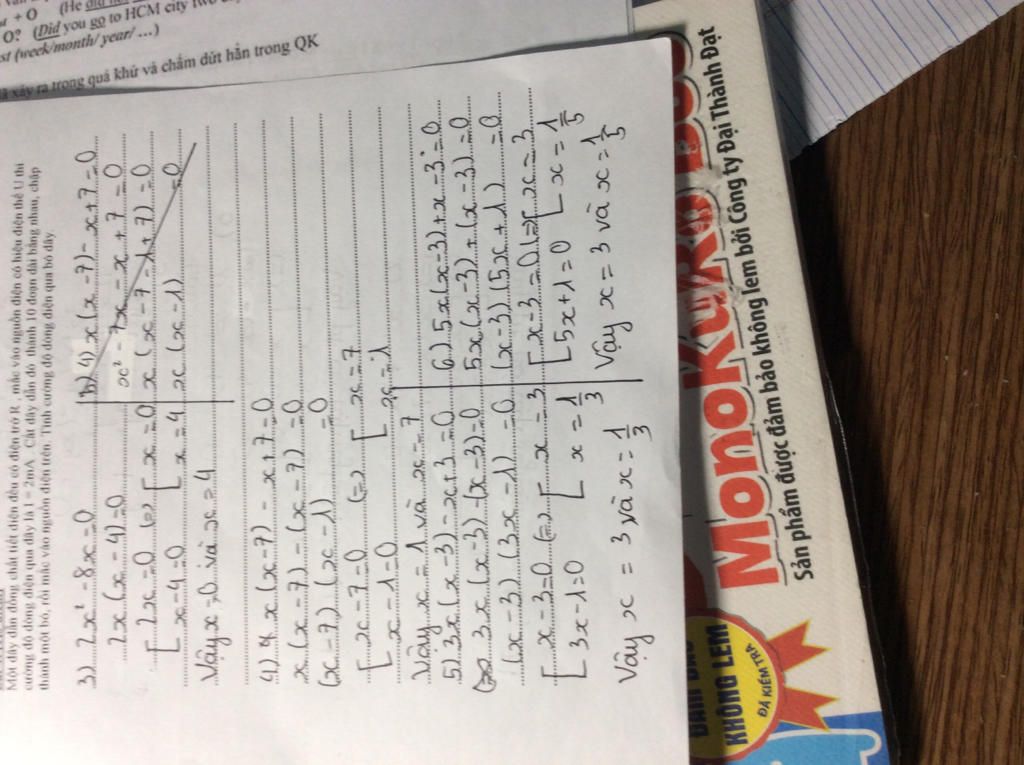 + O (He did
O? (Did you go to HCM city two
st (week/month/ year/ ...)
xảy ra trong quá khứ và chấm dứt hẳn trong QK
Một dây dẫn đồng chất tiết diện đều có điện trở R , mắc vào nguồn điện có hiệu điện thế U thì
cường độ dòng điện qua dây là I = 2mA . Cắt dây dẫn đó thành 10 đoạn dài bằng nhau, chập
thành một bó, rồi mắc vào nguồn điện trên. Tính cường độ dòng điện qua bó dây.
3) 2x² - 8x = 0
2x (x - 4) = 0
[ 2x = 0 (=) [ x = 0
[ x - 4 = 0 [ x = 4
Vậy x = 0 và x = 4
4) x (x - 7) - x + 7 = 0
x² - 7x - x + 7 = 0
x (x - 7 - 1 + 7) = 0
x (x - 1) = 0
4) x (x - 7) - x + 7 = 0
x (x - 7) - (x - 7) = 0
(x - 7) (x - 1) = 0
[ x - 7 = 0 (=) [ x = 7
[ x - 1 = 0 [ x = 1
Vậy x = 1 và x = 7
5) 3x (x - 3) - x + 3 = 0
3x (x - 3) - (x - 3) = 0
(x - 3) (3x - 1) = 0
[ x - 3 = 0 (=) [ x = 3
[ 3x - 1 = 0 [ x = 1/3
Vậy x = 3 và x = 1/3
6) 5x (x - 3) + x - 3 = 0
5x (x - 3) + (x - 3) = 0
(x - 3) (5x + 1) = 0
[ x - 3 = 0 (=) [ x = 3
[ 5x + 1 = 0 [ x = 1/5
Vậy x = 3 và x = 1/5
KHÔNG LEM
ĐÃ KIỂM TRA
MonoKuro Boo
Sản phẩm được đảm bảo không lem bởi Công ty Đại Thành Đạt